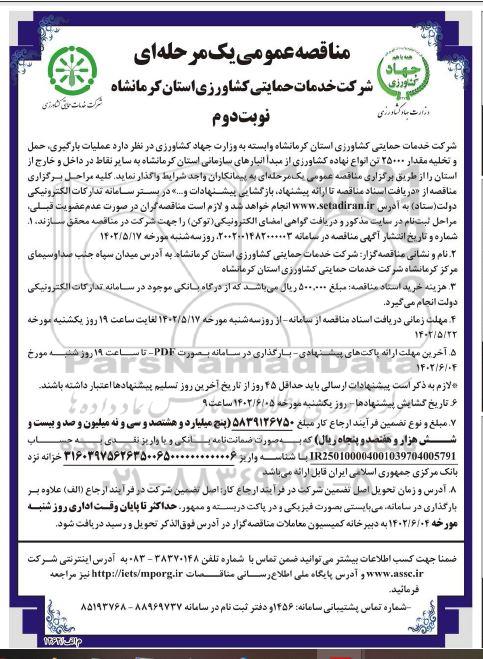 مناقصه عمومی یک مرحله‌ای
شرکت خدمات حمایتی کشاورزی استان کرمانشاه
نوبت دوم
همه با هم
جهاد
کشاورزی
وزارت جهاد کشاورزی
شرکت خدمات حمایتی کشاورزی
شرکت خدمات حمایتی کشاورزی استان کرمانشاه وابسته به وزارت جهاد کشاورزی در نظر دارد عملیات بارگیری، حمل
و تخلیه مقدار ۲۵۰۰۰ تن انواع نهاده کشاورزی از مبدأ انبارهای سازمانی استان کرمانشاه به سایر نقاط در داخل و خارج از
استان را از طریق برگزاری مناقصه عمومی یک مرحله‌ای به پیمانکاران واجد شرایط واگذار نماید. کلیه مراحل برگزاری
مناقصه از «دریافت اسناد مناقصه تا ارائه پیشنهاد، بازگشایی پیشنهادات و...» در بستر سامانه تدارکات الکترونیکی
دولت(ستاد) به آدرس www.setadiran.ir انجام خواهد شد و لازم است مناقصه گران در صورت عدم عضویت قبلی،
مراحل ثبت‌نام در سایت مذکور و دریافت گواهی امضای الکترونیکی(توکن) را جهت شرکت در مناقصه محقق سازند. ۱.
شماره و تاریخ انتشار آگهی مناقصه در سامانه ۲۰۰۲۰۰۱۴۸۲۰۰۰۰۰۳، روز سه‌شنبه مورخه ۱۴۰۲/۵/۱۷
۲. نام و نشانی مناقصه‌گزار: شرکت خدمات حمایتی کشاورزی استان کرمانشاه. به آدرس میدان سپاه جنب صداوسیمای
مرکز کرمانشاه شرکت خدمات حمایتی کشاورزی استان کرمانشاه
۳. هزینه خرید اسناد مناقصه: مبلغ ۵۰۰,۰۰۰ ریال می‌باشد که از درگاه بانکی موجود در سامانه تدارکات الکترونیکی
دولت انجام می‌گیرد.
۴. مهلت زمانی دریافت اسناد مناقصه از سامانه -از روز سه‌شنبه مورخه ۱۴۰۲/۵/۱۷ لغایت ساعت ۱۹ روز یکشنبه مورخه
۱۴۰۲/۵/۲۲
۵. آخرین مهلت ارائه پاکت‌های پیشنهادی - بارگذاری در سامانه بصورت PDF- تا ساعت ۱۹ روز شنبه مورخ
۱۴۰۲/۶/۰۴
*لازم به ذکر است پیشنهادات ارسالی باید حداقل ۴۵ روز از تاریخ آخرین روز تسلیم پیشنهادها اعتبار داشته باشند.
۶. تاریخ گشایش پیشنهادها - روز یکشنبه مورخه ۱۴۰۲/۶/۰۵ ساعت ۹
۷. مبلغ و نوع تضمین فرآیند ارجاع کار مبلغ ۵۸۳۹۱۲۶۷۵۰ (پنج میلیارد و هشتصد و سی و نه میلیون و صد و بیست و
شش هزار و هفتصد و پنجاه ریال) که به صورت ضمانت‌نامه بانکی و یا واریز نقدی به حساب
IR250100004001039704005791 با شناسه واریز خزانه نزد
بانک مرکزی جمهوری اسلامی ایران قابل ارائه می‌باشد.
۸. آدرس و زمان تحویل اصل تضمین شرکت در فرآیند ارجاع کار: اصل تضمین شرکت در فرآیند ارجاع (الف) علاوه بر
بارگذاری در سامانه، می‌بایستی بصورت فیزیکی و در پاکت دربسته و ممهور، حداکثر تا پایان وقت اداری روز شنبه
مورخه ۱۴۰۲/۶/۰۴ به دبیرخانه کمیسیون معاملات مناقصه‌گزار در آدرس فوق‌الذکر تحویل و رسید دریافت شود.
ضمنا جهت کسب اطلاعات بیشتر می‌توانید ضمن تماس با شماره تلفن ۳۸۳۷۰۱۴۸ - ۰۸۳ به آدرس اینترنتی شرکت
www.assc.ir و آدرس پایگاه ملی اطلاع رسانی مناقصات http://iets/mporg.ir نیز مراجعه
فرمائید.
-شماره تماس پشتیبانی سامانه: ۱۴۵۶ و دفتر ثبت نام در سامانه ۸۸۹۶۹۷۳۷ - ۸۵۱۹۳۷۶۸
ParsNamadData
۰۲۱-۸۸۳۴۹۶۷۰-۵